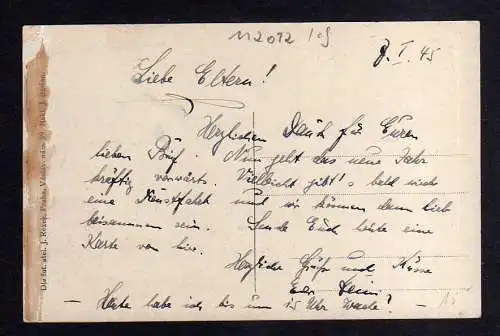 112072
8. I. 45
Liebe Eltern!
Herzlichen Dank für Euren
lieben Brief. Nun geht das neue Jahr
kräftig vorwärts. Vielleicht gibt's bald mich
eine Dienstfahrt und wir können dann lieb
beisammen sein. Sende Euch heute eine
Karte von hier.
Herzliche Grüße und Küsse
Euer
– Heute habe ich bis um 15 Uhr Wache! –